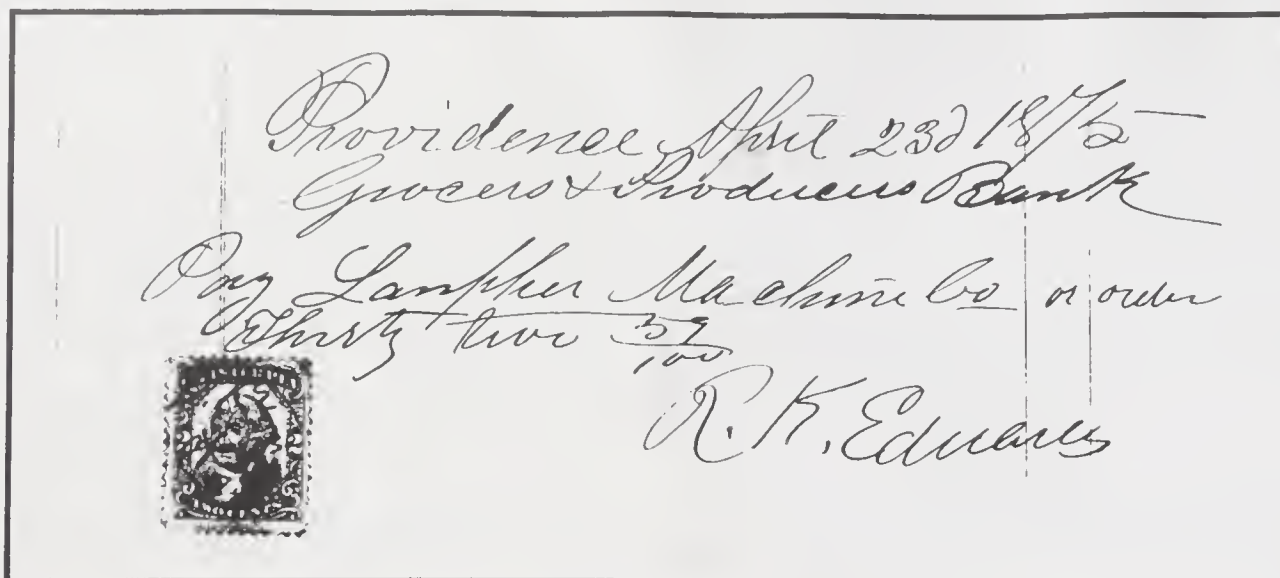 Providence April 23d 1875
Grocers & Producers Bank
Pay Lanpher Machine Co or order
Thirty two 59/100
R. K. Edwards
TWO CENTS